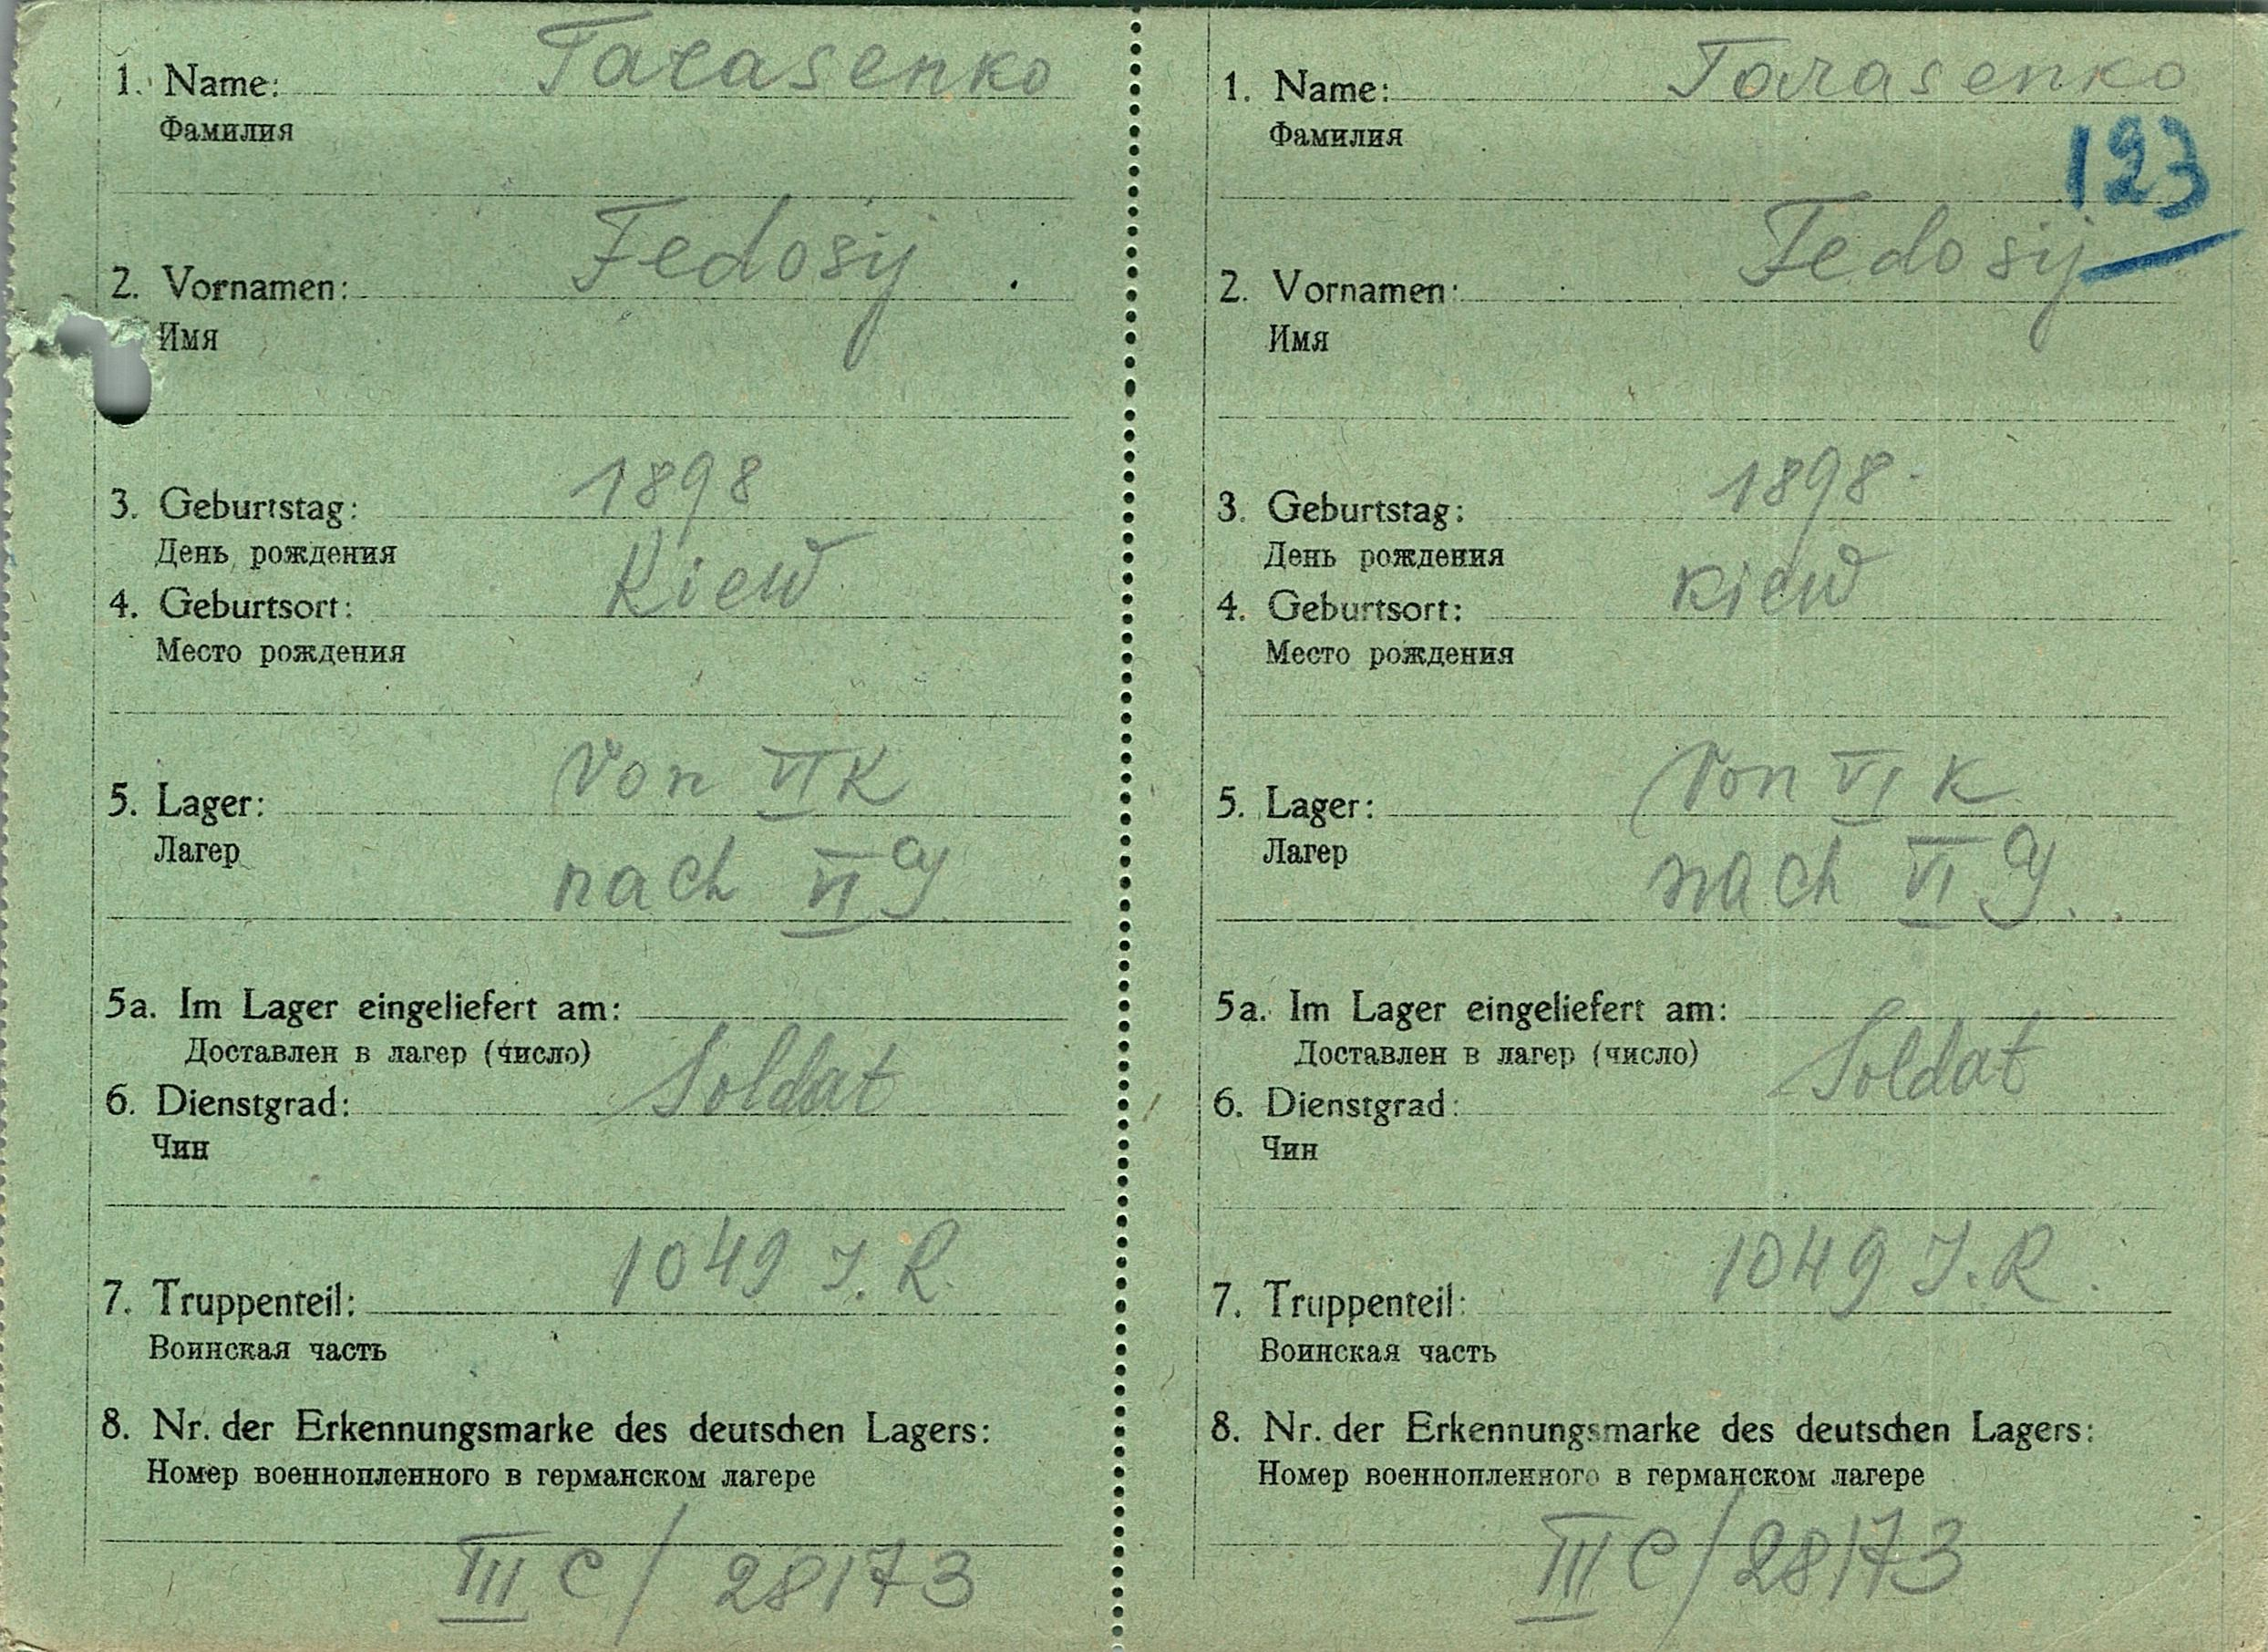 1. Name: Tarasenko
Фамилия
2. Vornamen: Fedosij
Имя
3. Geburtstag: 1898
День рождения
4. Geburtsort: Kiew
Место рождения
5. Lager: Von VI K
Лагер
nach VI G
5a. Im Lager eingeliefert am:
Доставлен в лагер (число)
6. Dienstgrad: Soldat
Чин
7. Truppenteil: 1049 J. R.
Воинская часть
8. Nr. der Erkennungsmarke des deutschen Lagers:
Номер военнопленного в германском лагере
III C / 28173
1. Name: Tarasenko
Фамилия
123
2. Vornamen: Fedosij
Имя
3. Geburtstag: 1898
День рождения
4. Geburtsort: Kiew
Место рождения
5. Lager: Von VI K
Лагер
nach VI G.
5a. Im Lager eingeliefert am:
Доставлен в лагер (число)
6. Dienstgrad: Soldat
Чин
7. Truppenteil: 1049 J. R.
Воинская часть
8. Nr. der Erkennungsmarke des deutschen Lagers:
Номер военнопленного в германском лагере
III C / 28173